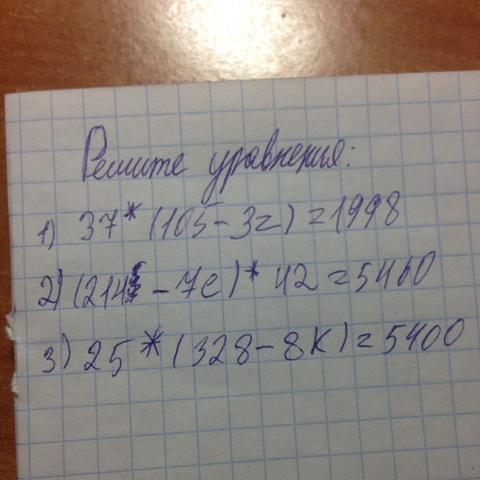 Решите уравнения:
1) 37*(105-3z)=1998
2) (214-7c)* 42=5460
3) 25*(328-8K)=5400